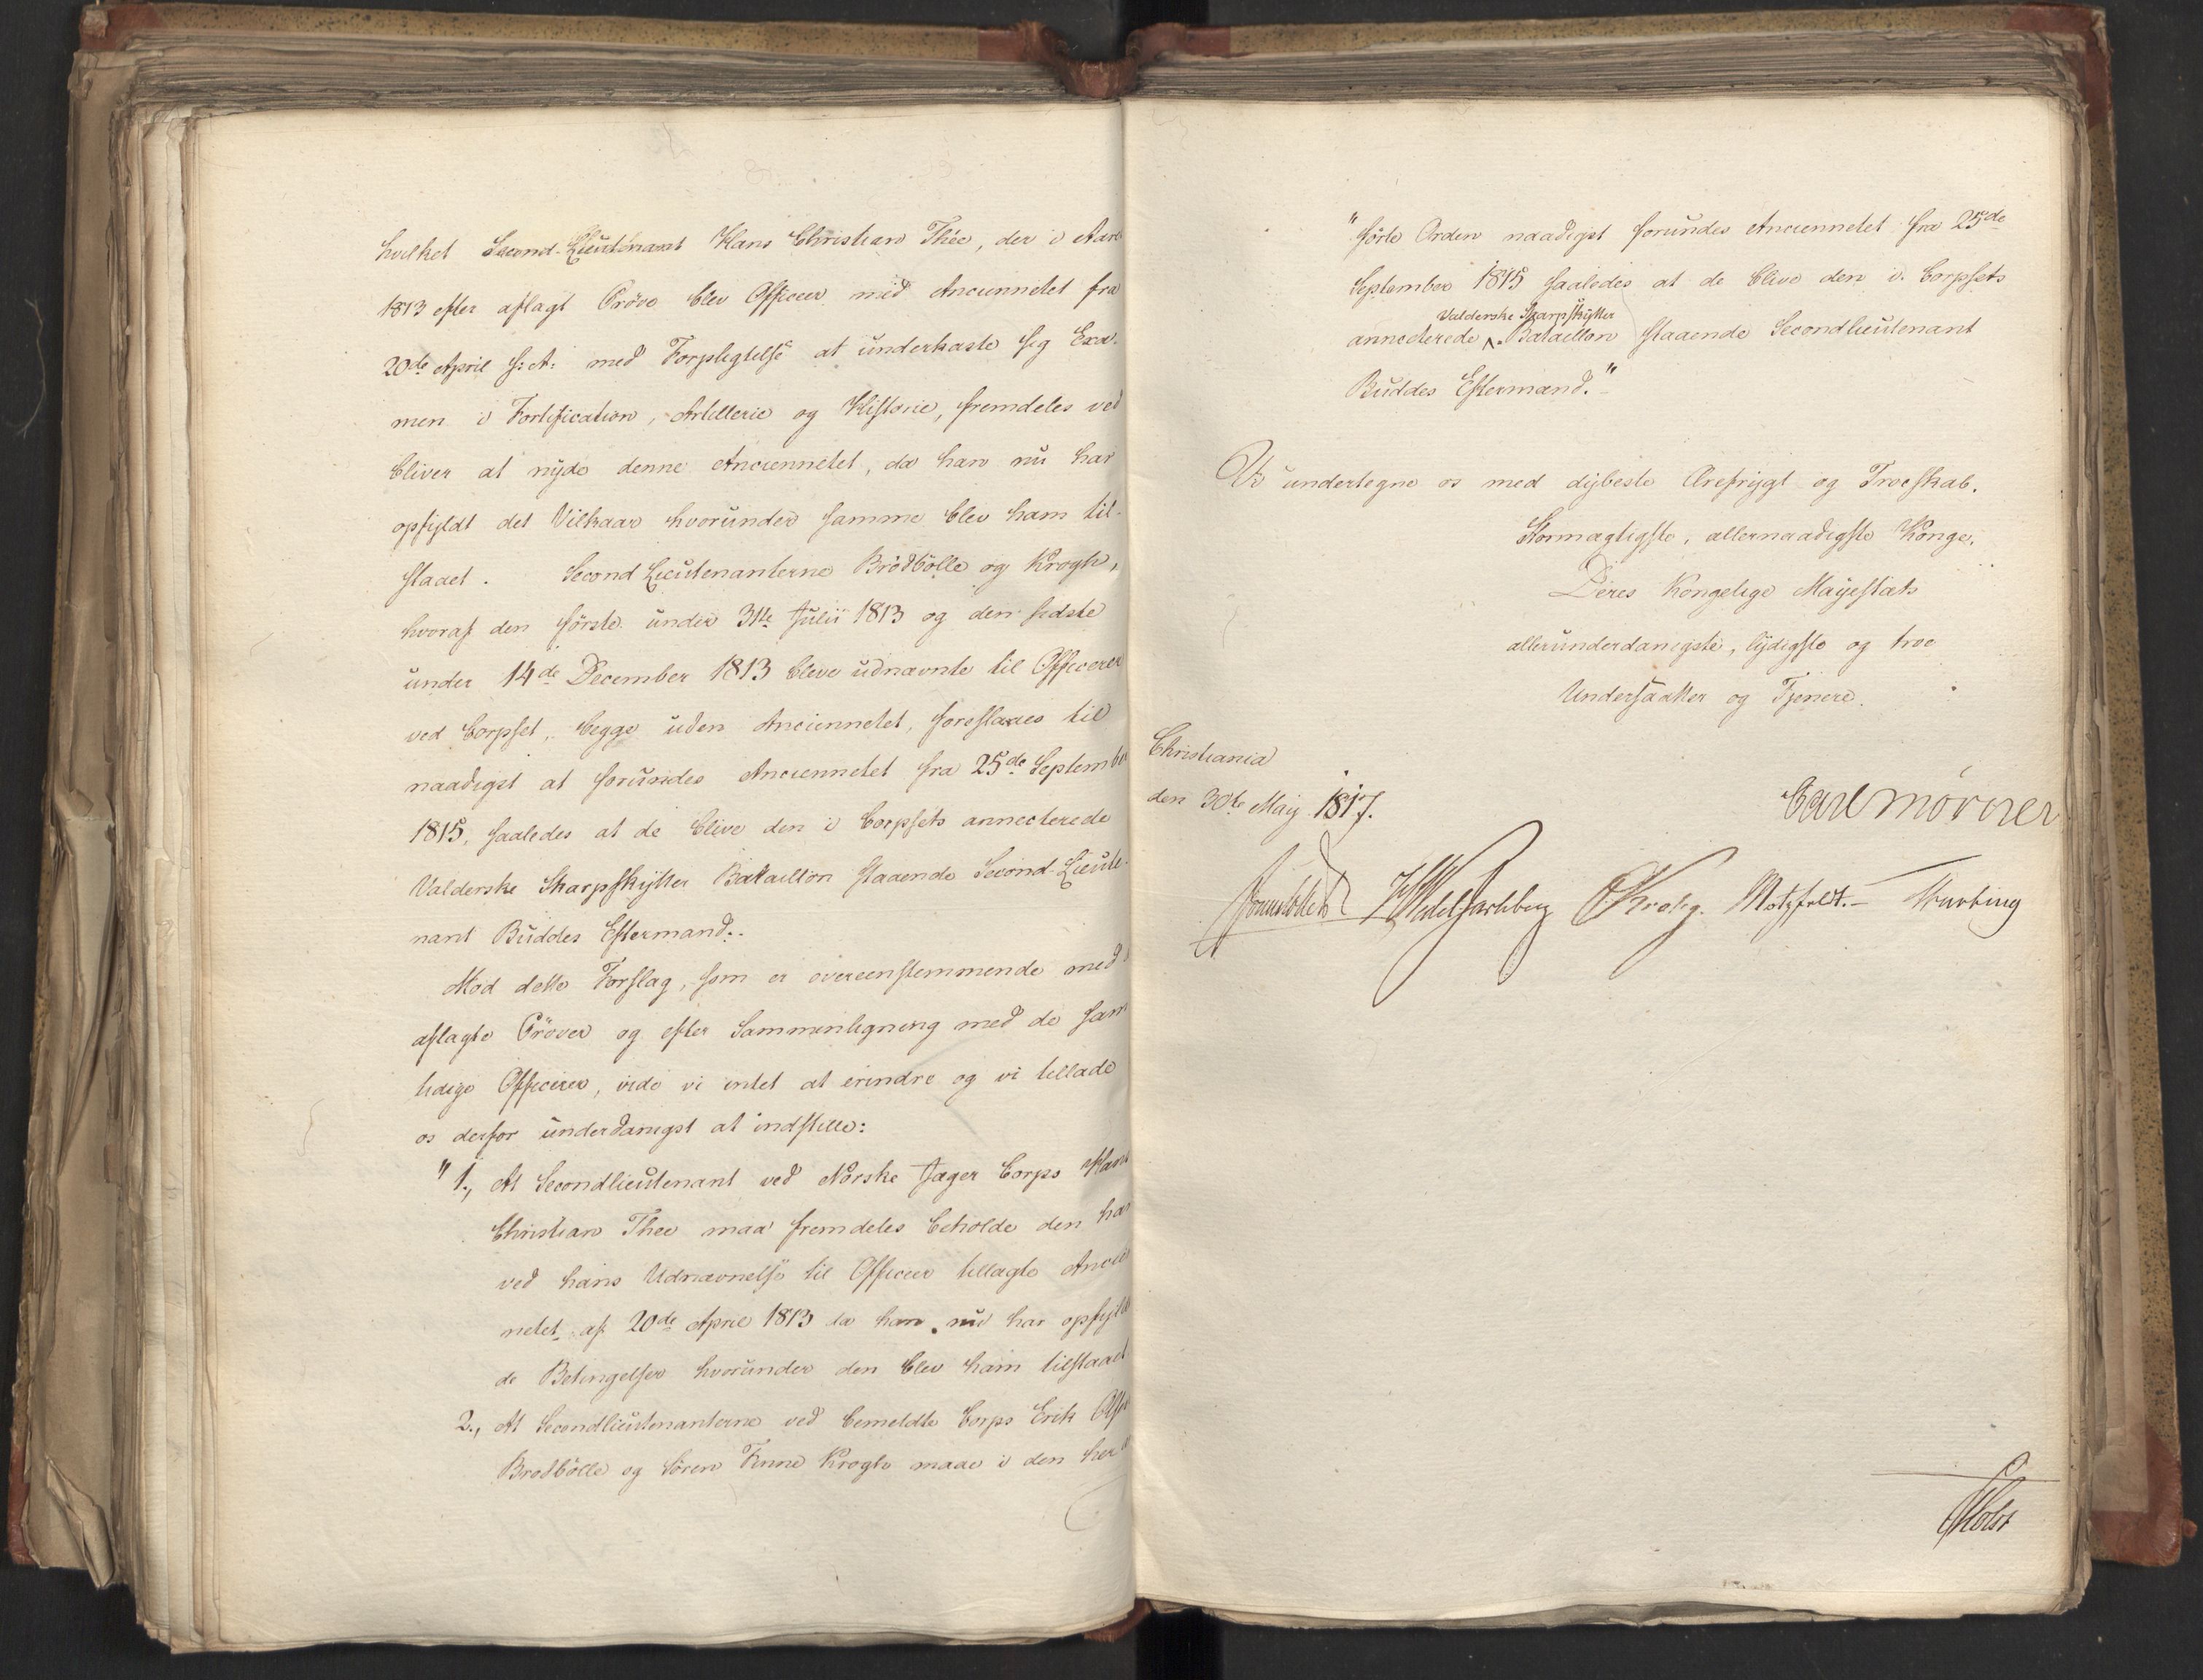 hvilket Second-Lieutenant Hans Christian Thée, der i Aaret
1813 efter aflagt Pröve blev Officeer med Anciennetet fra
20de April s: A: med Forpligtelse at underkaste sig Exa-
men i Fortification, Artillerie og Historie, fremdeles ved
bliver at nyde denne Anciennetet, da han nu har
opfyldt det Vilkaar hvorunder samme blev ham til-
staaet. Second Lieutenanterne Brödbölle og Krogh,
hvoraf den förste under 31te Julii 1813 og den sidste
under 14de December 1813 bleve udnævnte til Officerer
ved Corpset, begge uden Anciennetet, foreslaaes til
naadigst at forundes Anciennetet fra 25de September
1815, saaledes at de blive den i Corpsets annecterede
Valderske Skarpskytter Bataillon staaende Second-Lieute-
nant Buddes Eftermænd.
Mod dette Forslag, som er overeenstemmende med
aflagte Pröver og efter Sammenligning med de sam
tidige Officerer, vide vi intet at erindre og vi tillade
os derfor underdanigst at indstille:
"1., At Secondlieutenant ved Norske Jæger Corps Hans
Christian Thee maa fremdeles beholde den ham
ved hans Udnævnelse til Officeer tillagte Ancien
netet af 20de April 1813 da han nu har opfyldt
de Betingelser hvorunder den blev ham tilstaaet
2., At Secondlieutenanterne ved bemeldte Corps Erik
Brodbölle og Sören Finne Krogh maae i den her
"förte Orden naadigst forundes Anciennetet fra 25de
September 1815 saaledes at de blive den i Corpsets
Valderske Skarpskytter
annecterede Bataillon staaende Secondlieutenant
Buddes Eftermænd."
Vi undertegne os med dybeste Ærefrygt og Troeskab.
Stormægtigste, allernaadigste Konge,
Deres Kongelige Mayestæts
allerunderdanigste, lydigste og troe
Undersaatter og Tjenere.
Christiania
den 30te May 1817.
Carl Mörner
Sommerhielm HWedel Jarlsberg CKrohg. Motzfeldt.- Treschow
Holst